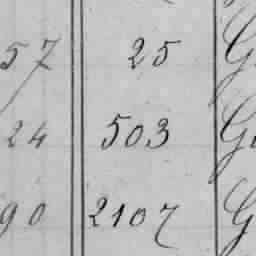 57 25 G
24 503 Ge
90 2107 G